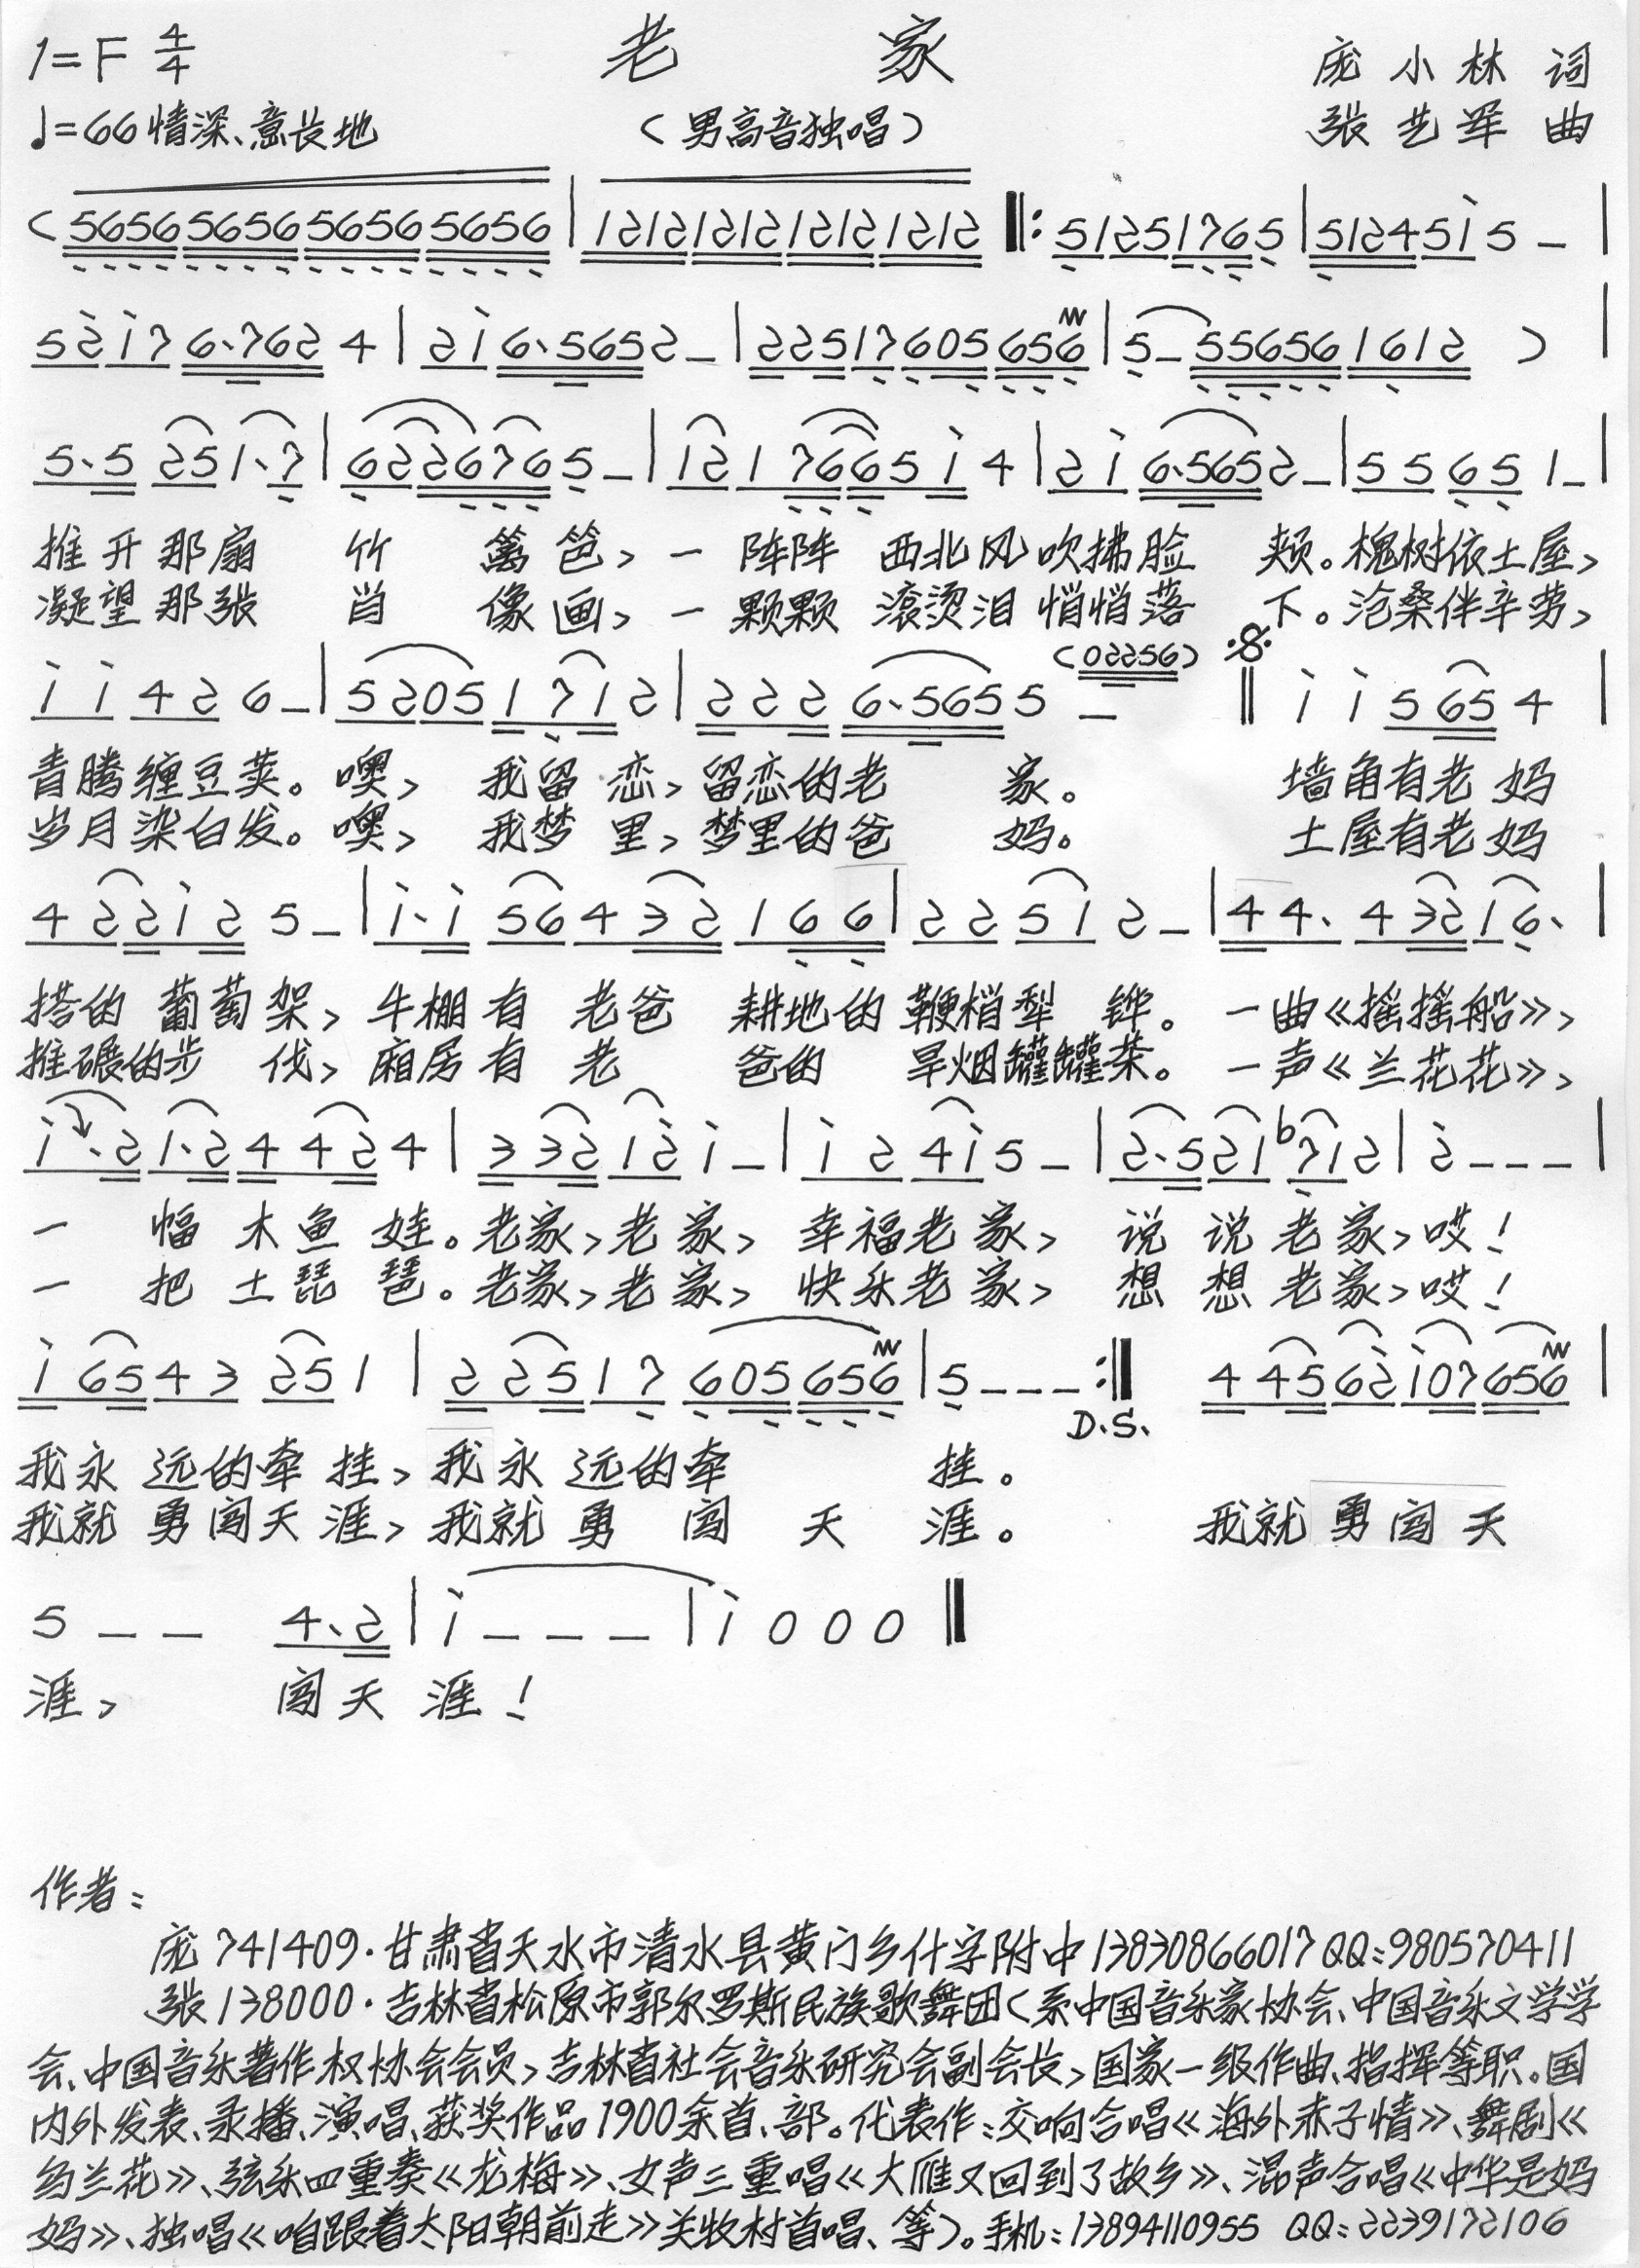 1=F 4/4 老 家 庞小林 词
♩=66 情深、意长地 (男高音独唱) 张艺军 曲
(5656 5656 5656 5656 | 1212 1212 1212 1212 ‖: 51251765 | 512451̇5 – |
52̇1̇7 6·762 4 | 21̇6·5652 – | 22517605656 | 5 – 55656 1612 ) |
5·5 251·7 | 6226765 – | 121 76651̇4 | 21̇6·5652 – | 55651 – |
推开那扇 竹 篱笆,一 阵阵 西北风吹拂脸 颊。槐树依土屋,
凝望那张 肖 像画,一 颗颗 滚烫泪悄悄落 下。沧桑伴辛劳,
(02256)
1̇1̇426 – | 52051712 | 2226·5655 – ‖ 1̇1̇5654 |
青腾缠豆荚。噢, 我留恋,留恋的老 家。 墙角有老妈
岁月染白发。噢, 我梦里,梦里的爸 妈。 土屋有老妈
4221̇25 – | 1̇·1̇56432166 | 22512 – | 44·43216· |
搭的葡萄架,牛棚有 老爸 耕地的鞭梢犁 铧。一曲《摇摇船》,
推碾的步 伐,厢房有 老 爸的 旱烟罐罐茶。一声《兰花花》,
1̇·21·24424 | 33212̇1̇ – | 1̇241̇5 – | 2·521♭712 | 2̇ – – – |
一 幅木鱼娃。老家,老家, 幸福老家, 说说老家,哎!
一 把土琵琶。老家,老家, 快乐老家, 想想老家,哎!
1̇65432511 | 22517605656 | 5 – – – :‖ 44562̇1̇07656 |
D.S.
我永远的牵挂,我永远的牵 挂。
我就勇闯天涯,我就勇 闯 天 涯。 我就勇闯天
5 – – 4·2 | 1̇ – – – | 1̇ 0 0 0 ‖
涯, 闯天涯!
作者:
庞741409·甘肃省天水市清水县黄门乡什字附中13830866017 QQ:980570411
张138000·吉林省松原市郭尔罗斯民族歌舞团(系中国音乐家协会、中国音乐文学学
会、中国音乐著作权协会会员,吉林省社会音乐研究会副会长,国家一级作曲、指挥等职。国
内外发表、录播、演唱、获奖作品1900余首、部。代表作:交响合唱《海外赤子情》、舞剧《
约兰花》、弦乐四重奏《龙梅》、女声三重唱《大雁又回到了故乡》、混声合唱《中华是妈
妈》、独唱《咱跟着太阳朝前走》关牧村首唱、等)。手机:13894110955 QQ:2239172106